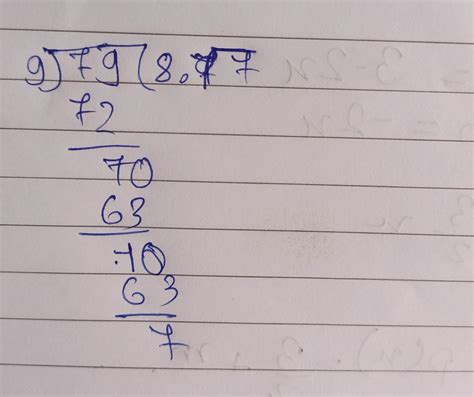 9)79(8.77
72
70
63
70
63
7